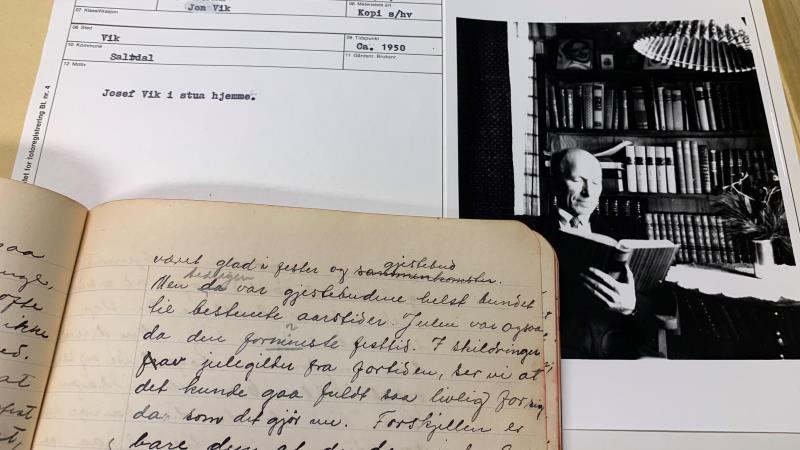 07 Klassifikasjon
Jon Vik
08 Materialets art
Kopi s/hv
08 Sted
Vik
09 Tidspunkt
Ca. 1950
10 Kommune
Saltdal
11 Gårdsnr. Bruksnr.
12 Motiv
Josef Vik i stua hjemme.
for fotoregistrering BL nr. 4
været glad i fester og gjestebud sammenkomster.
Men da var gjestebudene helst bundet
til bestemte aarstider. Julen var ogsaa
da den fornemste festtid. I skildringer
av julegilder fra fortiden, ser vi at
det kunde gaa fuldt saa livlig for sig
da som det gjør nu. Forskjellen er
bare den at
gaa
ofte
ikke
ed.
at